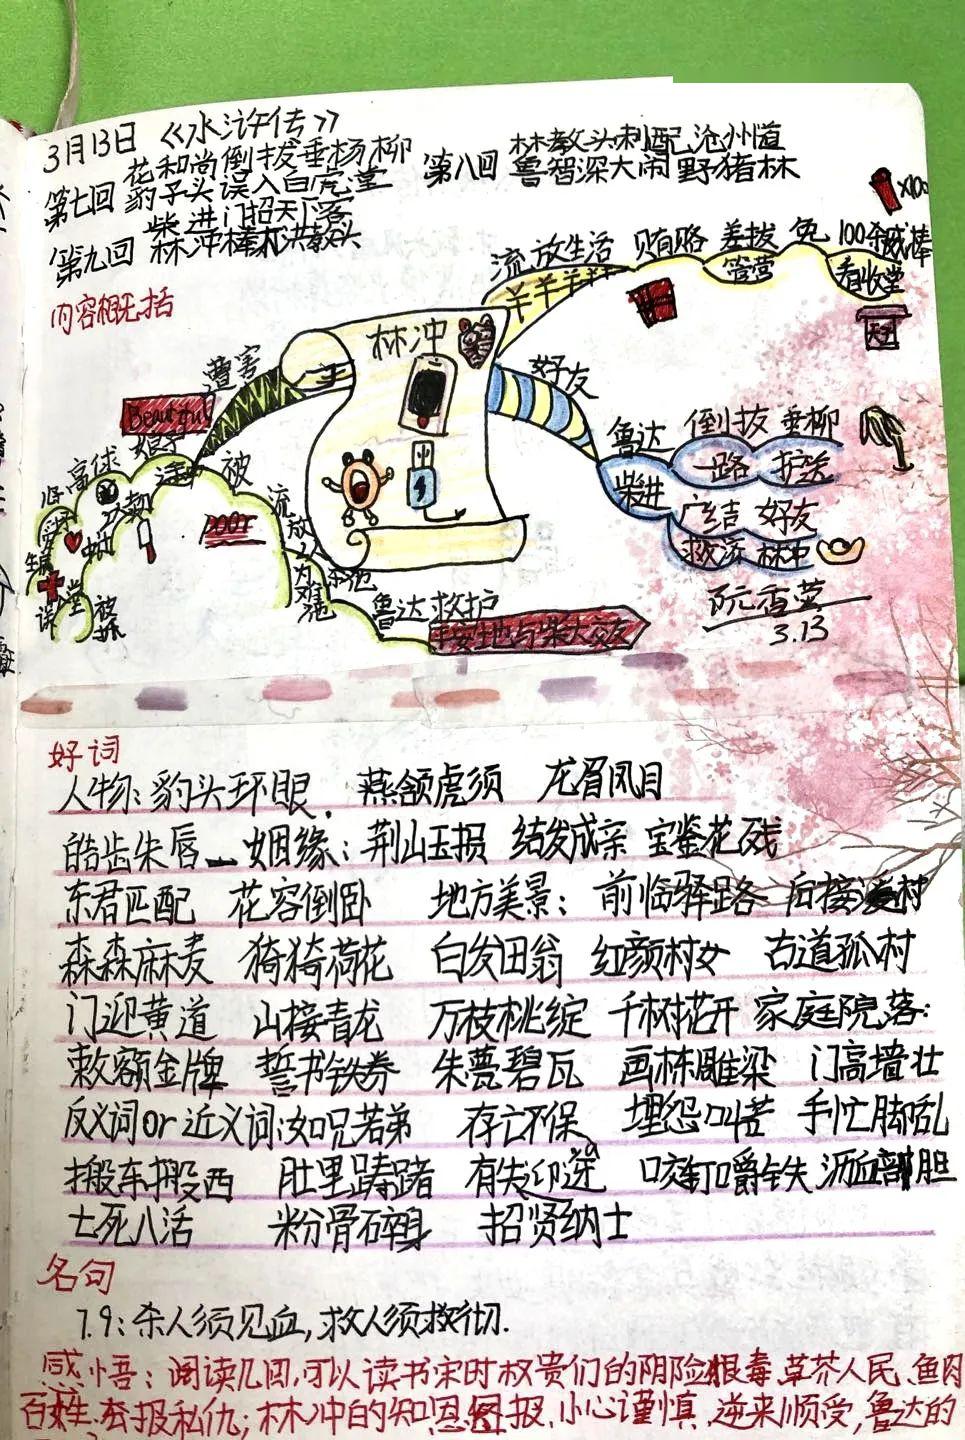 3月13日 《水浒传》
第七回 花和尚倒拔垂杨柳
豹子头误入白虎堂
第八回 林教头刺配沧州道
鲁智深大闹野猪林
第九回 柴进门招天下客
林冲棒打洪教头
内容概括
流放生活 贿赂 差拨 免 100余戒棒
管营 看收堂
羊羊羊
x100
天王
林冲
好友
遭害
Beautiful
高俅
被
流放
鲁达 倒拔 垂柳
一路 护送
柴进 广结 好友
救济 林冲
鲁达救护
阮香莹
3.13
好词
人物:豹头环眼 燕颔虎须 龙眉凤目
皓齿朱唇 姻缘:荆山玉损 结发成亲 宝鉴花残
东君匹配 花容倒卧 地方美景:前临驿路 后接溪村
森森麻麦 猗猗荷花 白发田翁 红颜村女 古道孤村
门迎黄道 山接青龙 万枝桃绽 千树花开 家庭院落:
敕额金牌 誓书铁券 朱甍碧瓦 画栋雕梁 门高墙壮
反义词or近义词:如兄若弟 存亡不保 埋怨叫苦 手忙脚乱
搬东搬西 肚里踌躇 有失迎迓 咬钉嚼铁 沥血剖胆
七死八活 粉骨碎身 招贤纳士
名句
7.9:杀人须见血,救人须救彻.
感悟:阅读几回,可以读书宋时权贵们的阴险狠毒、草芥人民、鱼肉
百姓、夯报私仇;林冲的知恩图报、小心谨慎、逆来顺受,鲁达的